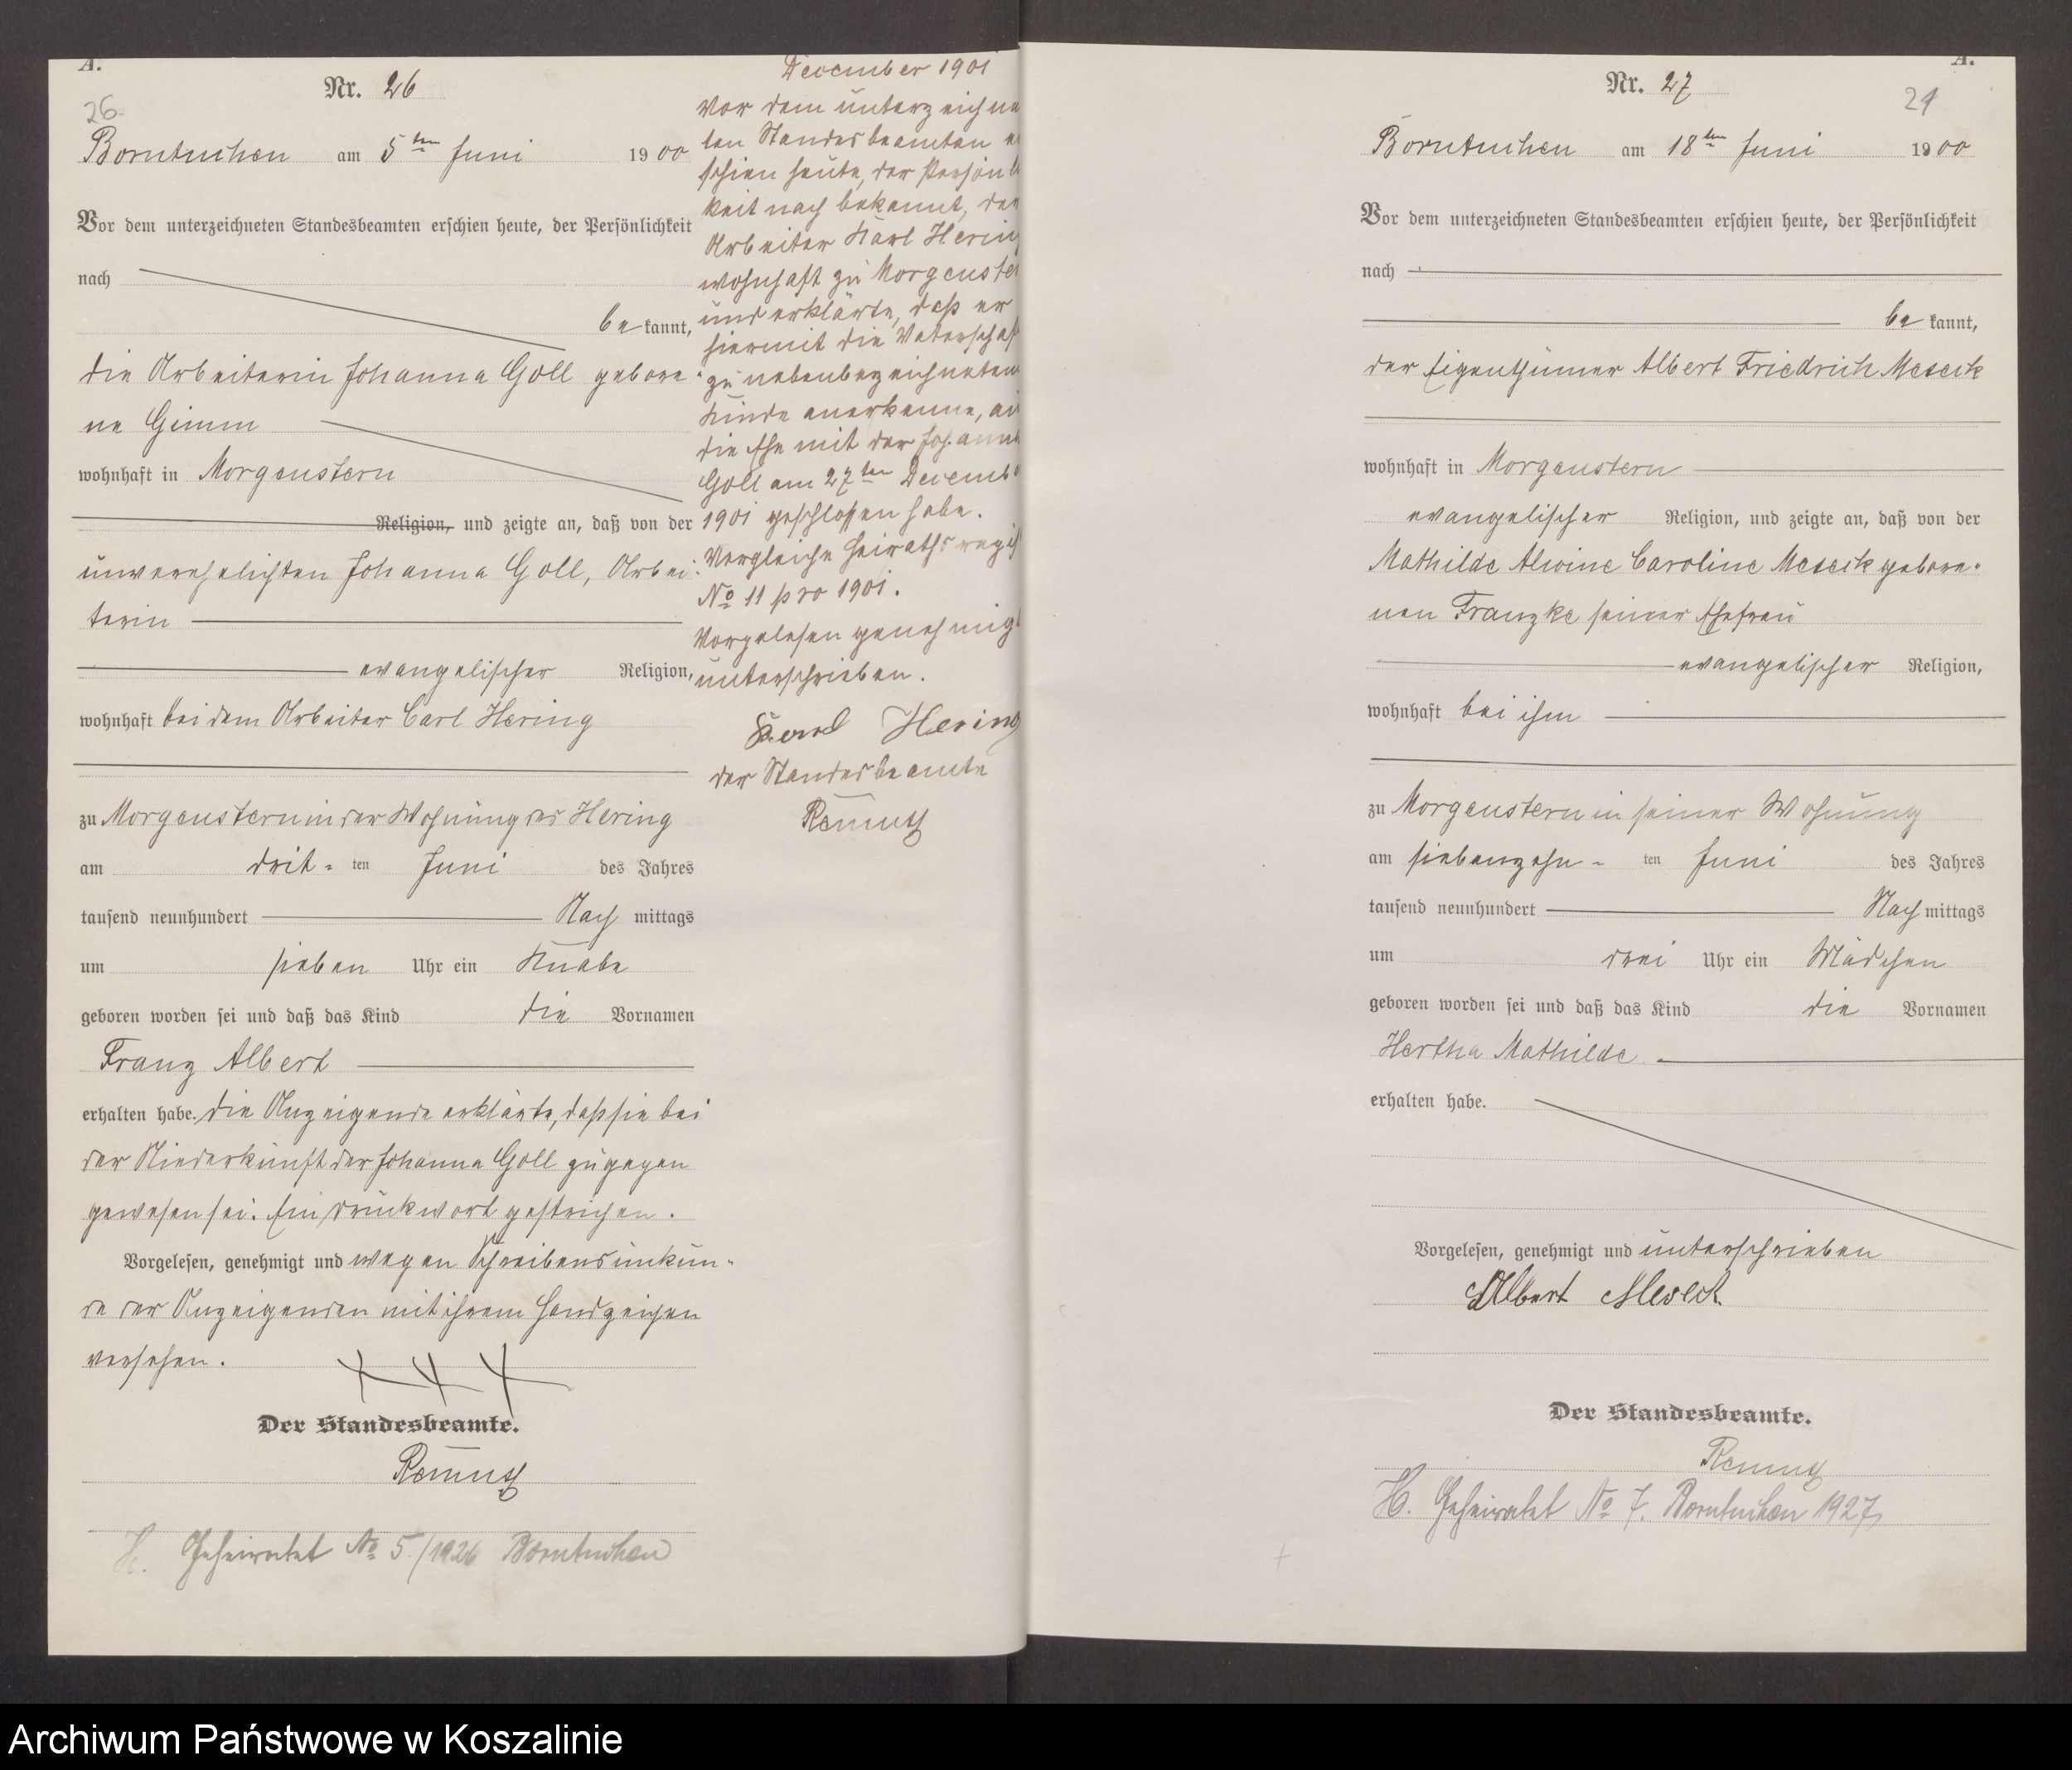 A.
Nr. 26
26.
Borntuchen am 5ten Juni 1900
Vor dem unterzeichneten Standesbeamten erschien heute, der Persönlichkeit
nach
be kannt,
die Arbeiterin Johanna Goll gebore-
ne Gimm
wohnhaft in Morgenstern
Religion, und zeigte an, daß von der
unverehelichten Johanna Goll, Arbei-
terin
evangelischer Religion,
wohnhaft bei dem Arbeiter Carl Hering
zu Morgenstern in der Wohnung des Hering
am drit- ten Juni des Jahres
tausend neunhundert Nach mittags
um sieben Uhr ein Knabe
geboren worden sei und daß das Kind die Vornamen
Franz Albert
erhalten habe. Die Anzeigende erklärte, daß sie bei
der Niederkunft der Johanna Goll zugegen
gewesen sei. Ein Druckwort gestrichen.
Vorgelesen, genehmigt und wegen Schreibensunkun-
de der Anzeigenden mit ihrem Handzeichen
versehen.
+ + +
Der Standesbeamte.
Remus
H. Geheiratet No 5/1926 Borntuchen
December 1901
Vor dem unterzeichne
ten Standesbeamten er
schien heute, der Persönli
keit nach bekannt, der
Arbeiter Karl Hering
wohnhaft zu Morgenster
und erklärte, daß er
hiermit die Vaterschaf
zu nebenbezeichnetem
Kinde anerkenne, au
die Ehe mit der Johanna
Goll am 27ten Decembe
1901 geschlossen habe.
Vergleiche Heirathsregis
No 11 pro 1901.
Vorgelesen genehmigt
unterschrieben.
Karl Hering
der Standesbeamte
Remus
A.
Nr. 27
Borntuchen am 18ten Juni 1900
Vor dem unterzeichneten Standesbeamten erschien heute, der Persönlichkeit
nach
be kannt,
der Eigenthümer Albert Friedrich Meseck
wohnhaft in Morgenstern
evangelischer Religion, und zeigte an, daß von der
Mathilde Alwine Caroline Meseck gebore-
nen Franzke seiner Ehefrau
evangelischer Religion,
wohnhaft bei ihm
zu Morgenstern in seiner Wohnung
am siebenzehn- ten Juni des Jahres
tausend neunhundert Nach mittags
um drei Uhr ein Mädchen
geboren worden sei und daß das Kind die Vornamen
Hertha Mathilde
erhalten habe.
Vorgelesen, genehmigt und unterschrieben
Albert Meseck
Der Standesbeamte.
Remus
H. Geheiratet No 7. Borntuchen 1927
Archiwum Państwowe w Koszalinie